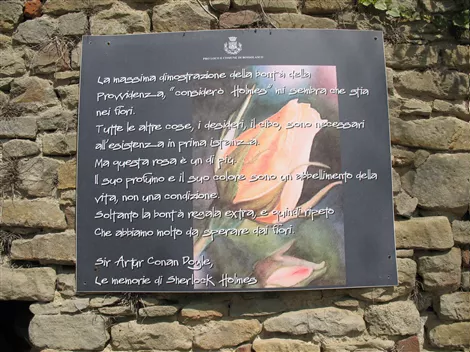 La massima dimostrazione della bontà della
Provvidenza, "considerò Holmes" mi sembra che stia
nei fiori.
Tutte le altre cose, i desideri, il cibo, sono necessari
all'esistenza in prima istanza.
Ma questa rosa è un di più.
Il suo profumo e il suo colore sono un abbellimento della
vita, non una condizione.
Soltanto la bontà regala extra, e quindi ripeto
Che abbiamo molto da sperare dai fiori.
Sir Artur Conan Doyle,
Le memorie di Sherlock Holmes